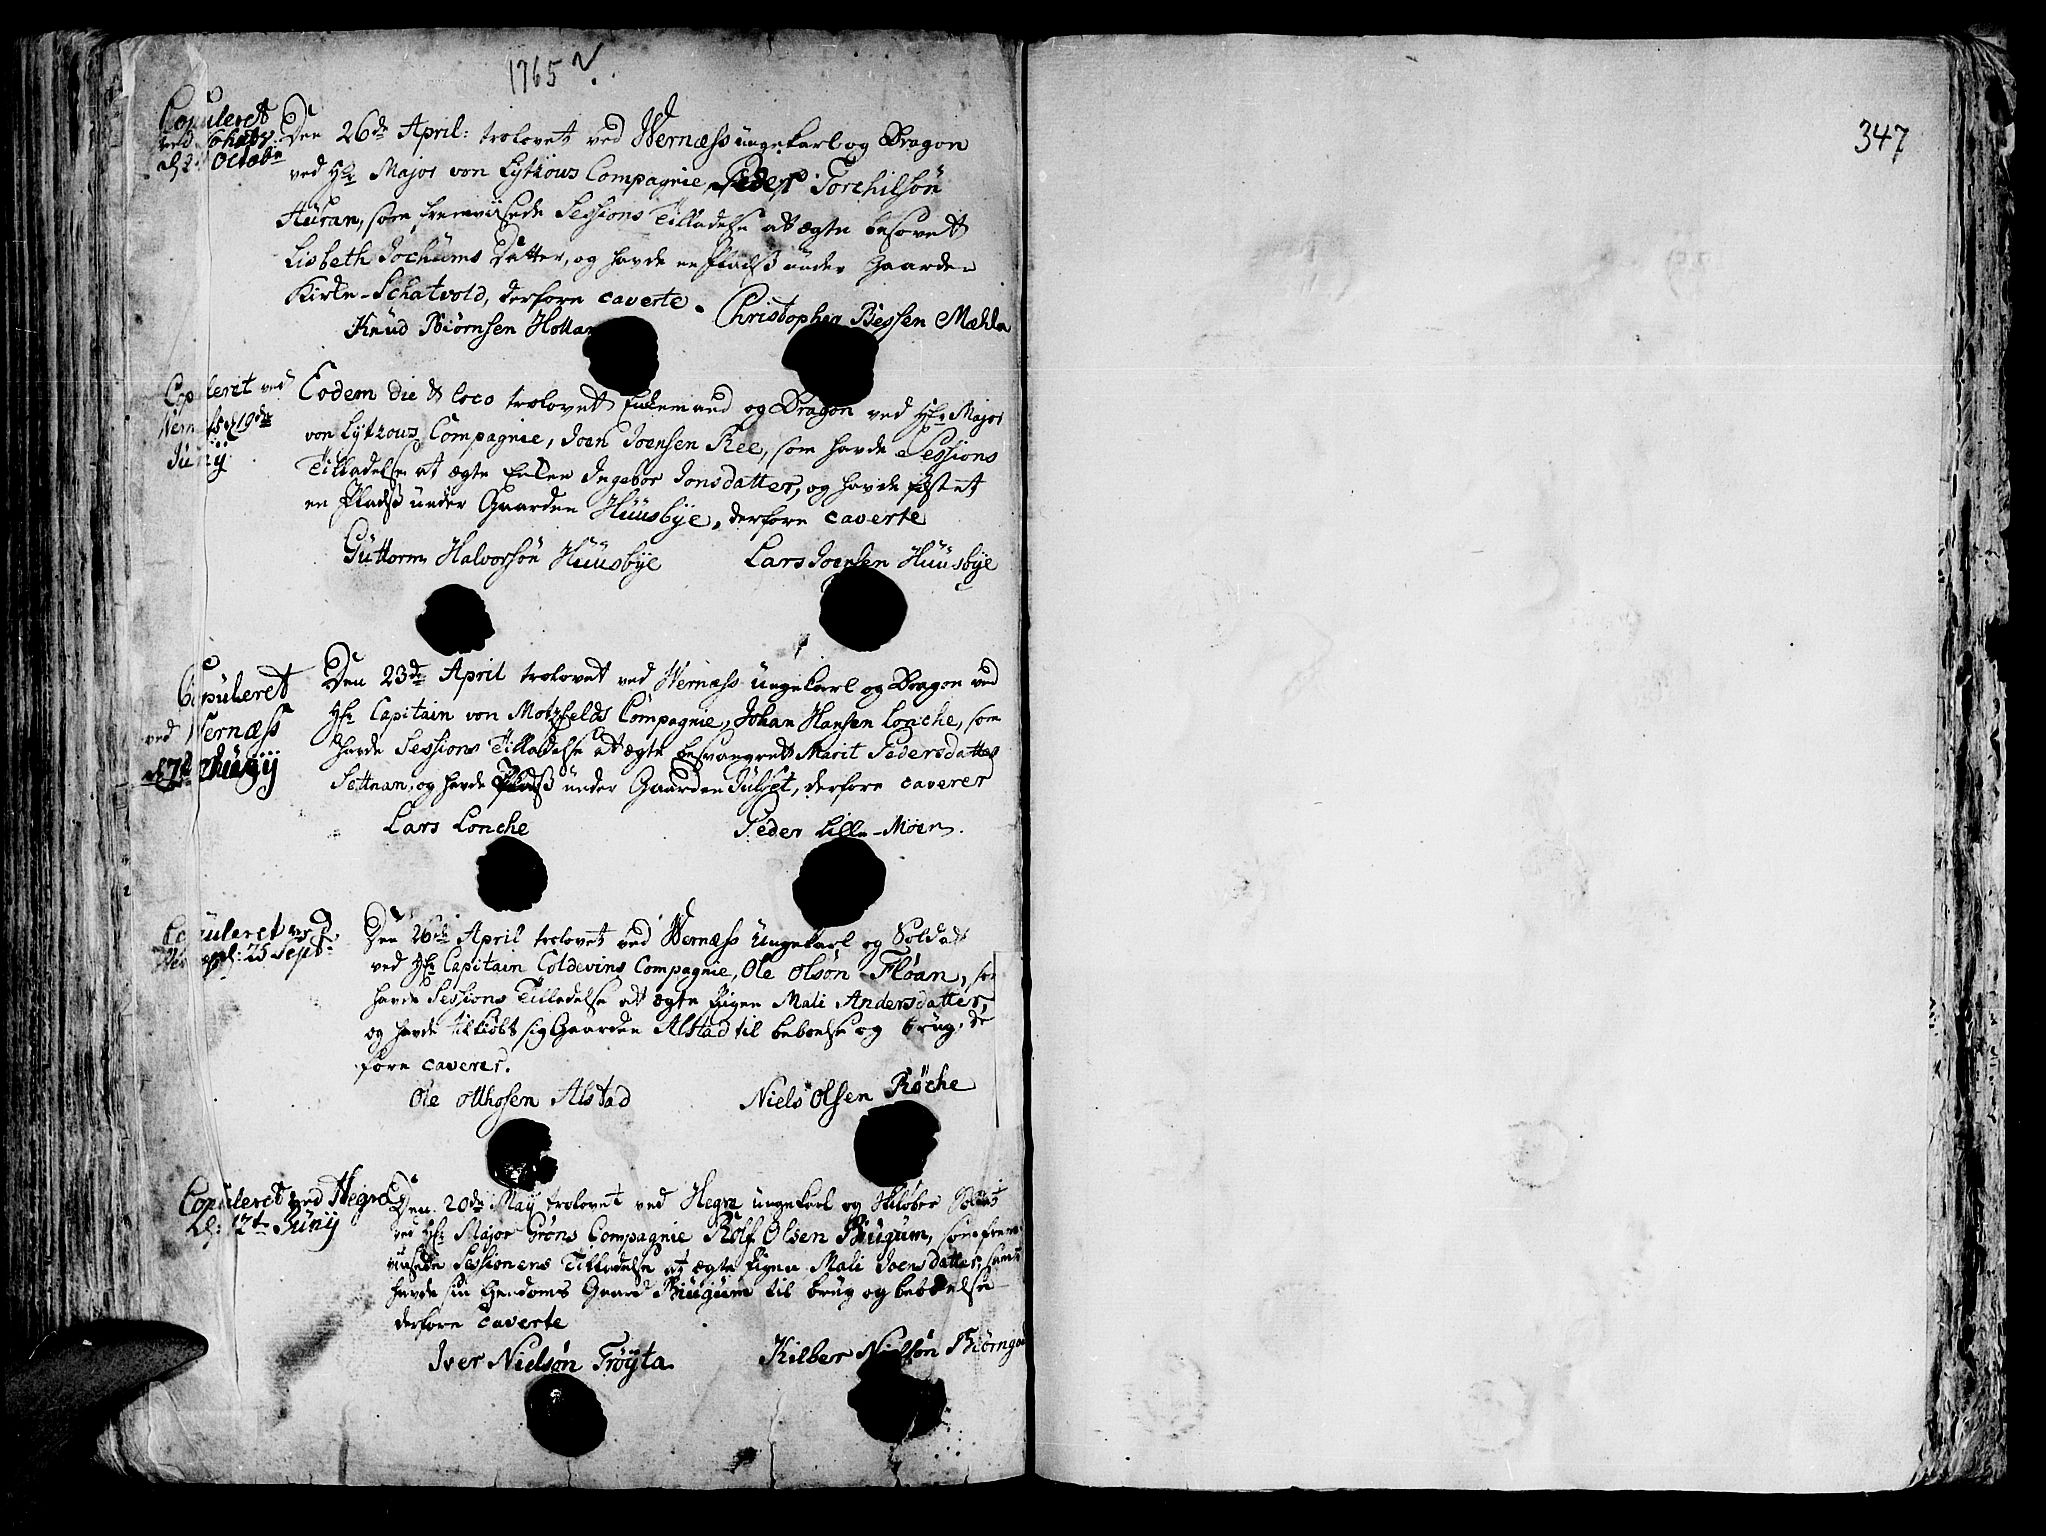 1765
347
Copuleret
Den 26de April: trolovet ved Wernæss ungekarl og Dragon
ved Hr Major von Lytzous Compagnie, Peder Torchilsön
Auran, som fremviisede Sessions Tilladelse at ægte besovet
Lisbeth Jochums Datter, og havde en Pladss under Gaarden
Kirke-Schatvold, derfore caverte.
Knud Biörnsen Holla Christopher Bessen Mæhla
Copulerit ved
Wernæss d 19de
Junij.
Eodem die & loco trolovet Enkemand og Dragon ved Hr Major
von Lytzous Compagnie, Joen Joensen Ree, som havde Sessions
Tilladelse at ægte Enken Ingebor Jonsdatter, og havde fæstet
en Pladss under Gaarden Huusbye, derfore caverte
Guttorm Halvorsön Huusbye Lars Joensen Huusbye
Copuleret
ved Wernæss
d 7de Junij
Den 23de April trolovet ved Wernæss ungekarl og Dragon ved
Hr Capitain von Motzfelds Compagnie, Johan Hansen Lonche, som
havde Sessions Tilladelse at ægte besvangret Marit Pedersdatter
Settnan, og havde Pladss under Gaarden Julset, derfore caverer
Lars Lonche Peder Lille-Moen.
Copuleret ved
d: 25 Septr
Den 26de April trolovet ved Wernæss Ungekarl og Soldat
ved Hr Capitain Coldevins Compagnie, Ole Olsön Flöan, som
havde Sessions Tilladelse at ægte Pigen Mali Andersdatter,
og havde tilkiöbt sig Gaarden Alstad til beboelse og brug, der
fore caverer.
Ole Otthosen Alstad Niels Olsen Röche
Copuleret ved Hegre
d: 12te Junij
Den 20de May trolovet ved Hegre ungekarl og Skilöber Soldat
ved Hr Major Gröns Compagnie Rolf Olsen Biugum, som frem
viisede Sessionens Tilladelse at ægte Pigen Mali Joensdatter, samt
havde sin Ejendoms Gaard Biugum til brug og beboelse
derfore caverte
Iver Nielsön Tröyta. Kilber Nielsön Biörngaard